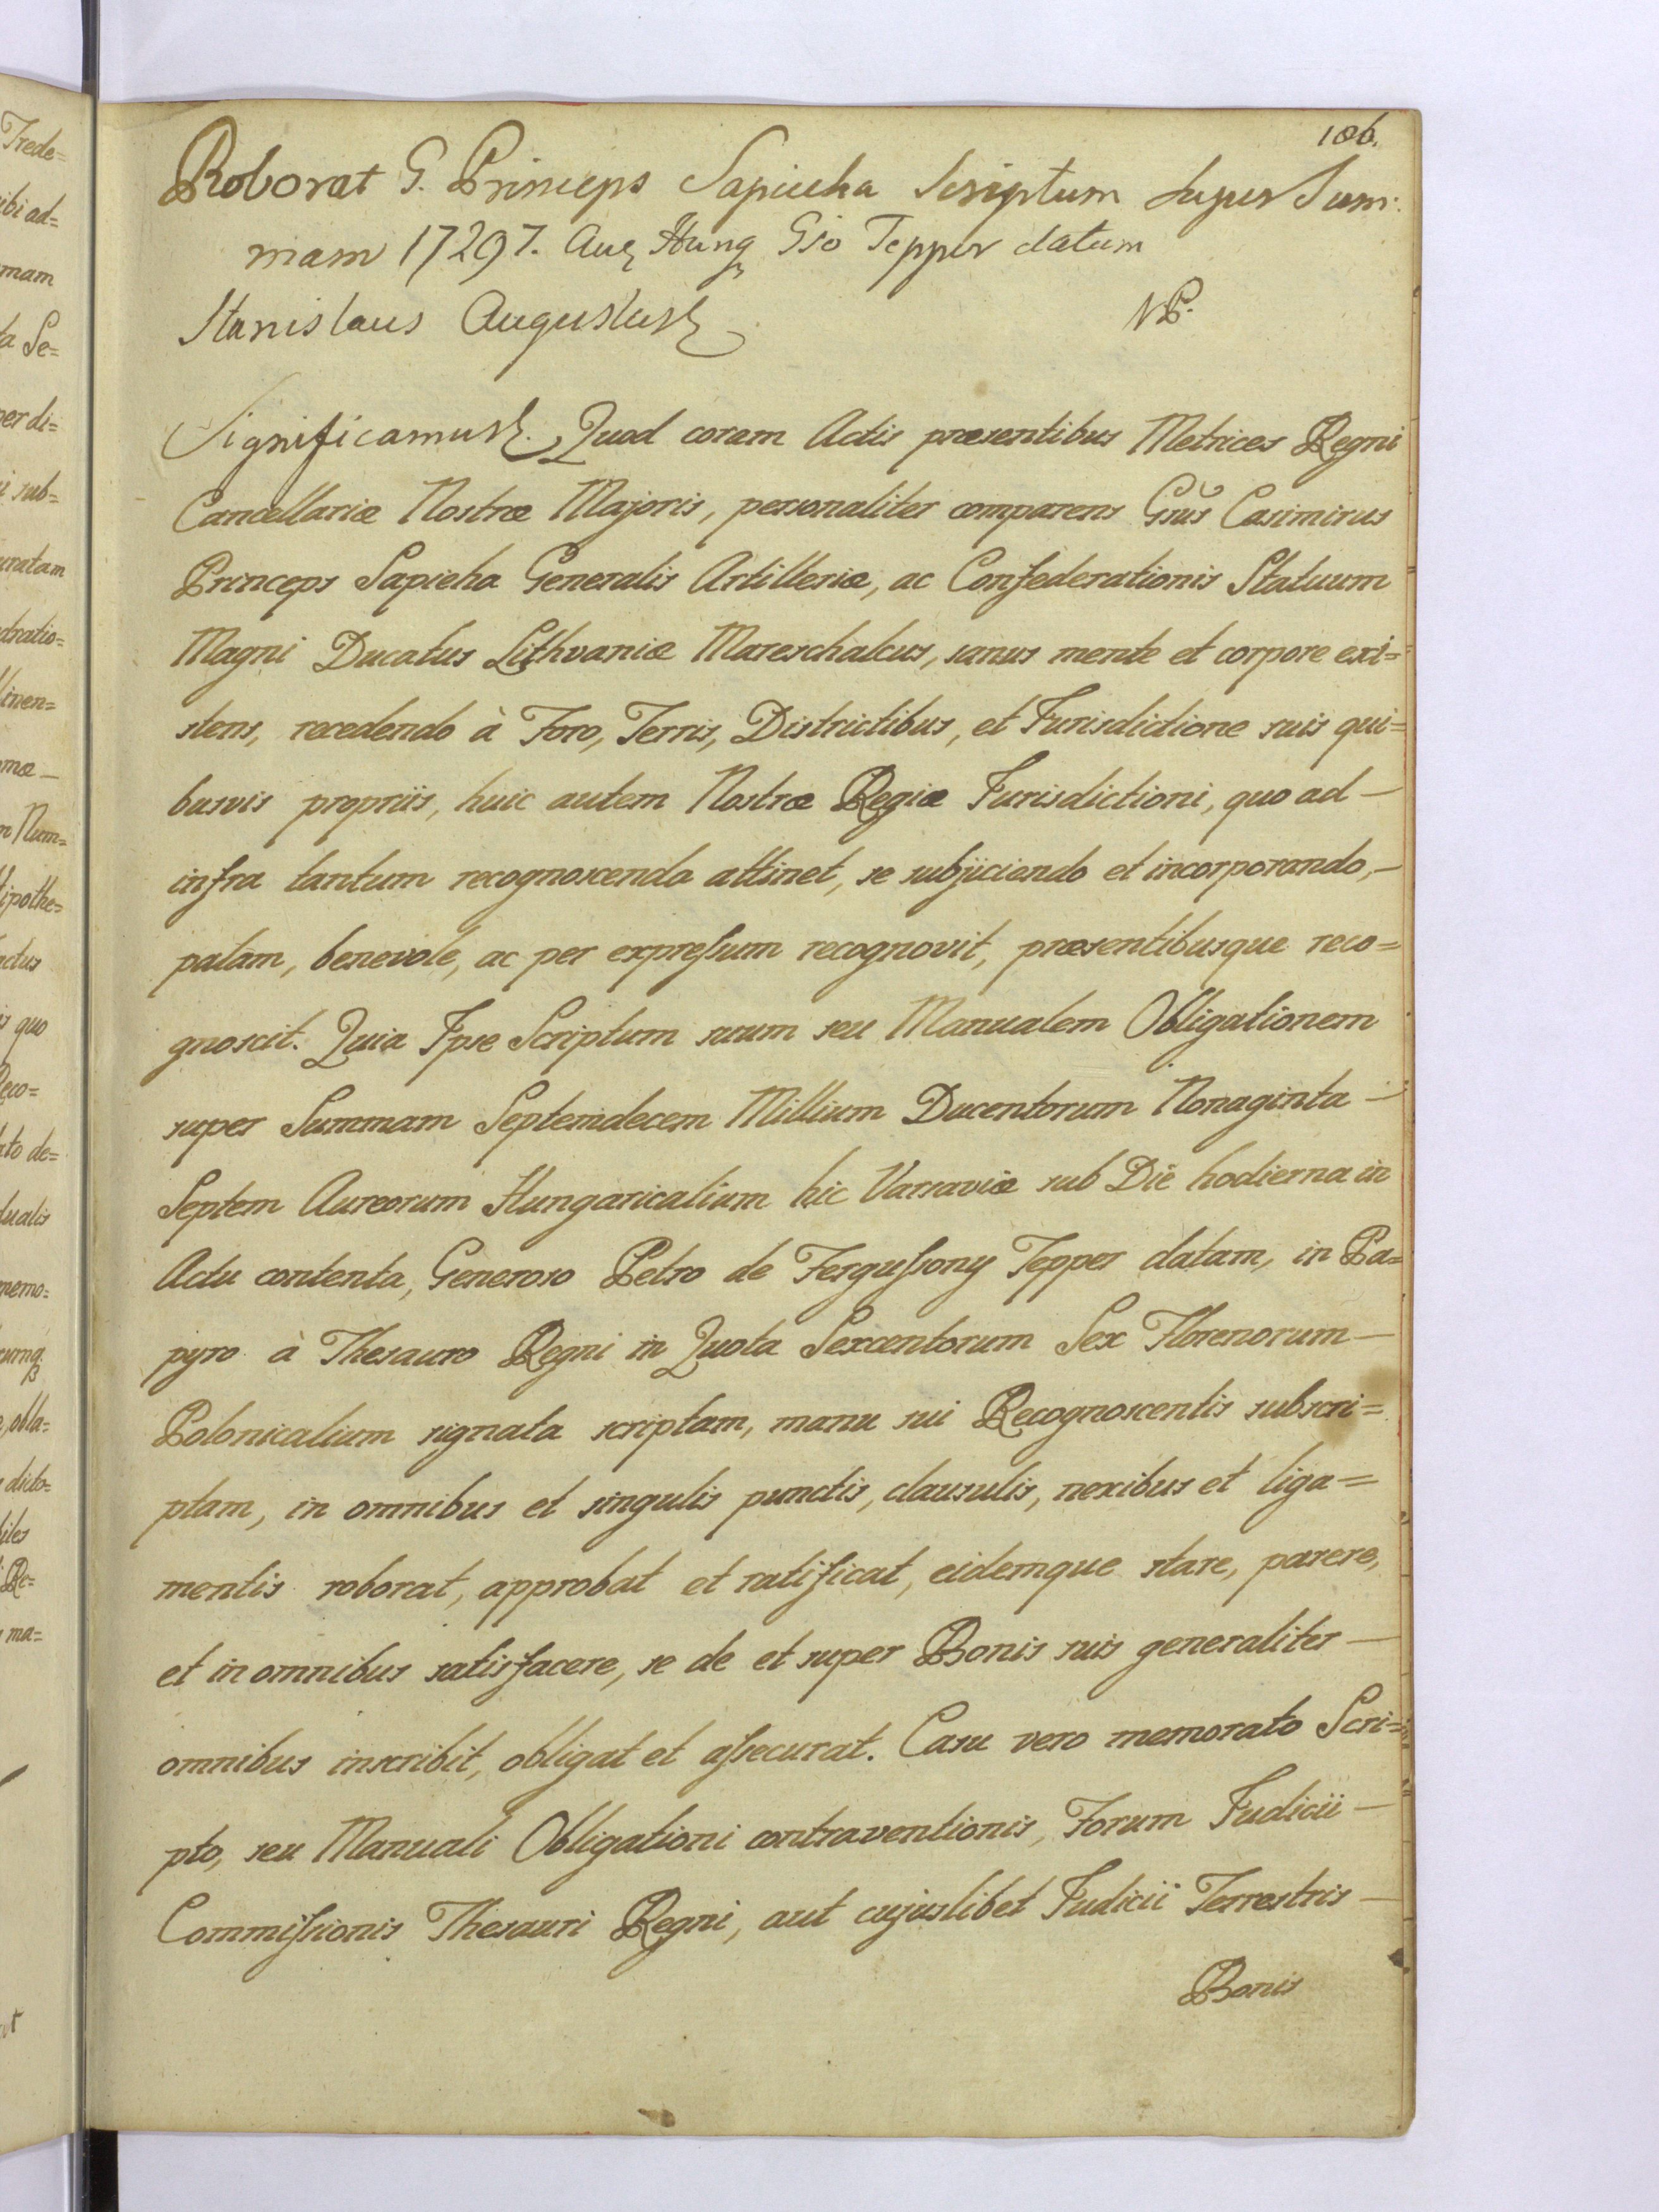 106.
Roborat G. Princeps Sapieha Scriptum super Sum:
mam 17297. Aur Hung Gso Tepper datum
Stanislaus Augustus NP.
Significamus. Quod coram Actis præsentibus Metrices Regni
Cancellariæ Nostræ Majoris, personaliter comparens Gsus Casimirus
Princeps Sapieha Generalis Artilleriæ, ac Confederationis Statuum
Magni Ducatus Lithvaniæ Mareschalcus, sanus mente et corpore exi=
stens, recedendo à Foro, Terris, Districtibus, et Jurisdictione suis qui=
busvis propriis, huic autem Nostræ Regiæ Jurisdictioni, quo ad —
infra tantum recognoscenda attinet, se subjiciendo et incorporando, —
palam, benevole, ac per expreſsum recognovit, præsentibusque reco=
gnoscit. Quia Ipse Scriptum suum seu Manualem Obligationem
super Summam Septemdecem Millium Ducentorum Nonaginta —
Septem Aureorum Hungaricalium hic Varsaviæ sub Die hodierna in
Actu contenta, Generoso Petro de Ferguſsony Tepper datam, in Pa=
pyro à Thesauro Regni in Quota Sexcentorum Sex Florenorum —
Polonicalium signata scriptam, manu sui Recognoscentis subscri=
ptam, in omnibus et singulis punctis, clausulis, nexibus et liga=
mentis roborat, approbat et ratificat, eidemque stare, parere,
et in omnibus satisfacere, se de et super Bonis suis generaliter —
omnibus inscribit, obligat et aſsecurat. Casu vero memorato Scri=
pto, seu Manuali Obligationi contraventionis, Forum Judicii —
Commiſsionis Thesauri Regni, aut cujuslibet Judicii Terrestris —
Bonis